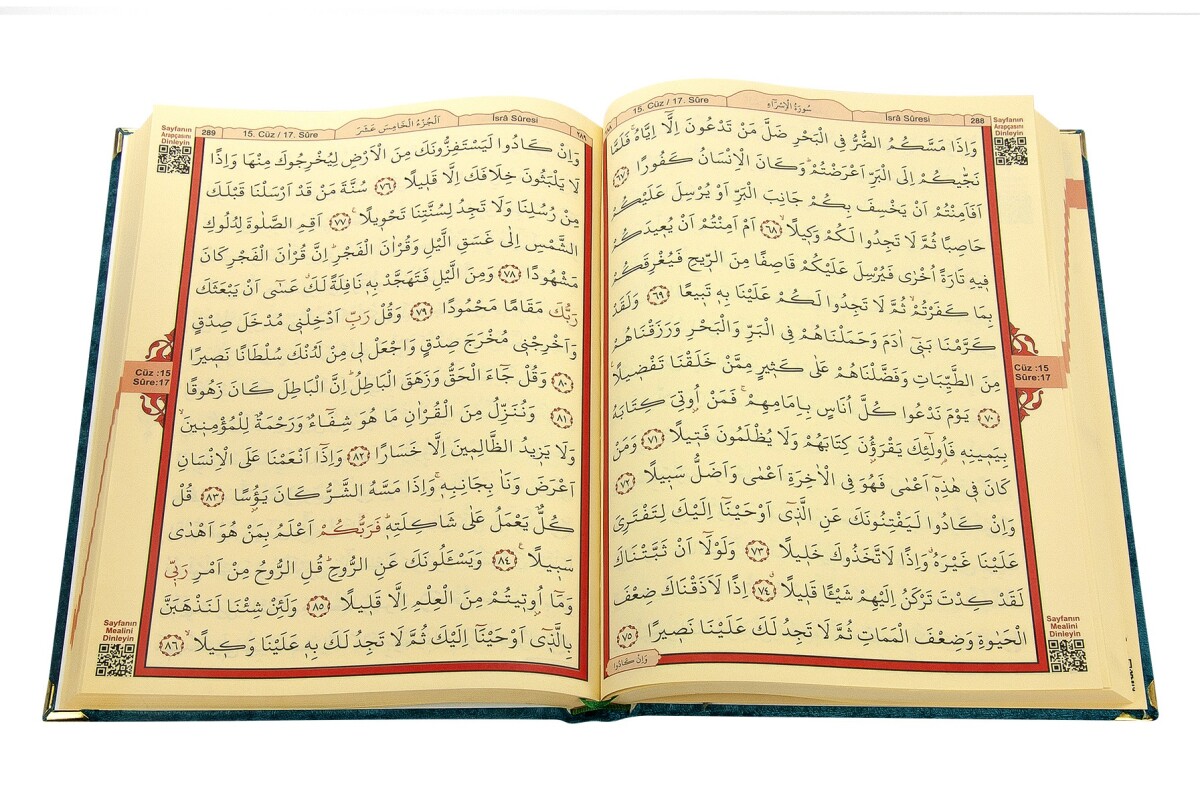 288 İsrâ Sûresi سُورَةُ الْاِسْرَٓاءِ 15. Cüz / 17. Sûre ٢٨٨
Sayfanın
Arapçasını
Dinleyin
وَاِذَا مَسَّكُمُ الضُّرُّ فِي الْبَحْرِ ضَلَّ مَنْ تَدْعُونَ اِلَّٓا اِيَّاهُۚ فَلَمَّا
نَجّٰيكُمْ اِلَى الْبَرِّ اَعْرَضْتُمْۜ وَكَانَ الْاِنْسَانُ كَفُورًا ﴿٦٧﴾
اَفَاَمِنْتُمْ اَنْ يَخْسِفَ بِكُمْ جَانِبَ الْبَرِّ اَوْ يُرْسِلَ عَلَيْكُمْ
حَاصِبًا ثُمَّ لَا تَجِدُوا لَكُمْ وَك۪يلًاۙ ﴿٦٨﴾ اَمْ اَمِنْتُمْ اَنْ يُع۪يدَكُمْ
ف۪يهِ تَارَةً اُخْرٰى فَيُرْسِلَ عَلَيْكُمْ قَاصِفًا مِنَ الرّ۪يحِ فَيُغْرِقَكُمْ
بِمَا كَفَرْتُمْۙ ثُمَّ لَا تَجِدُوا لَكُمْ عَلَيْنَا بِه۪ تَب۪يعًا ﴿٦٩﴾ وَلَقَدْ
كَرَّمْنَا بَن۪ٓي اٰدَمَ وَحَمَلْنَاهُمْ فِي الْبَرِّ وَالْبَحْرِ وَرَزَقْنَاهُمْ
مِنَ الطَّيِّبَاتِ وَفَضَّلْنَاهُمْ عَلٰى كَث۪يرٍ مِمَّنْ خَلَقْنَا تَفْض۪يلًا۟
﴿٧٠﴾ يَوْمَ نَدْعُوا كُلَّ اُنَاسٍ بِاِمَامِهِمْۚ فَمَنْ اُو۫تِيَ كِتَابَهُ
بِيَم۪ينِه۪ فَاُو۬لٰٓئِكَ يَقْرَؤُ۫نَ كِتَابَهُمْ وَلَا يُظْلَمُونَ فَت۪يلًا ﴿٧١﴾ وَمَنْ
كَانَ ف۪ي هٰذِه۪ٓ اَعْمٰى فَهُوَ فِي الْاٰخِرَةِ اَعْمٰى وَاَضَلُّ سَب۪يلًا ﴿٧٢﴾
وَاِنْ كَادُوا لَيَفْتِنُونَكَ عَنِ الَّذ۪ٓي اَوْحَيْنَٓا اِلَيْكَ لِتَفْتَرِيَ
عَلَيْنَا غَيْرَهُۗ وَاِذًا لَاتَّخَذُوكَ خَل۪يلًا ﴿٧٣﴾ وَلَوْلَٓا اَنْ ثَبَّتْنَاكَ
لَقَدْ كِدْتَ تَرْكَنُ اِلَيْهِمْ شَيْـًٔا قَل۪يلًاۗ ﴿٧٤﴾ اِذًا لَاَذَقْنَاكَ ضِعْفَ
الْحَيٰوةِ وَضِعْفَ الْمَمَاتِ ثُمَّ لَا تَجِدُ لَكَ عَلَيْنَا نَص۪يرًا ﴿٧٥﴾
وَاِنْ كَادُوا
Cüz :15
Sûre:17
Sayfanın
Mealini
Dinleyin
٢٨٩ İsrâ Sûresi اَلْجُزْءُ الْخَامِسَ عَشَرَ 15. Cüz / 17. Sûre 289
Sayfanın
Arapçasını
Dinleyin
وَاِنْ كَادُوا لَيَسْتَفِزُّونَكَ مِنَ الْاَرْضِ لِيُخْرِجُوكَ مِنْهَا وَاِذًا
لَا يَلْبَثُونَ خِلَافَكَ اِلَّا قَل۪يلًا ﴿٧٦﴾ سُنَّةَ مَنْ قَدْ اَرْسَلْنَا قَبْلَكَ
مِنْ رُسُلِنَا وَلَا تَجِدُ لِسُنَّتِنَا تَحْو۪يلًا۟ ﴿٧٧﴾ اَقِمِ الصَّلٰوةَ لِدُلُوكِ
الشَّمْسِ اِلٰى غَسَقِ الَّيْلِ وَقُرْاٰنَ الْفَجْرِۜ اِنَّ قُرْاٰنَ الْفَجْرِ كَانَ
مَشْهُودًا ﴿٧٨﴾ وَمِنَ الَّيْلِ فَتَهَجَّدْ بِه۪ نَافِلَةً لَكَۗ عَسٰٓى اَنْ يَبْعَثَكَ
رَبُّكَ مَقَامًا مَحْمُودًا ﴿٧٩﴾ وَقُلْ رَبِّ اَدْخِلْن۪ي مُدْخَلَ صِدْقٍ
وَاَخْرِجْن۪ي مُخْرَجَ صِدْقٍ وَاجْعَلْ ل۪ي مِنْ لَدُنْكَ سُلْطَانًا نَص۪يرًا
﴿٨٠﴾ وَقُلْ جَٓاءَ الْحَقُّ وَزَهَقَ الْبَاطِلُۜ اِنَّ الْبَاطِلَ كَانَ زَهُوقًا
﴿٨١﴾ وَنُنَزِّلُ مِنَ الْقُرْاٰنِ مَا هُوَ شِفَٓاءٌ وَرَحْمَةٌ لِلْمُؤْمِن۪ينَۙ
وَلَا يَز۪يدُ الظَّالِم۪ينَ اِلَّا خَسَارًا ﴿٨٢﴾ وَاِذَٓا اَنْعَمْنَا عَلَى الْاِنْسَانِ
اَعْرَضَ وَنَاٰ بِجَانِبِه۪ۚ وَاِذَا مَسَّهُ الشَّرُّ كَانَ يَؤُ۫سًا ﴿٨٣﴾ قُلْ
كُلٌّ يَعْمَلُ عَلٰى شَاكِلَتِه۪ۜ فَرَبُّكُمْ اَعْلَمُ بِمَنْ هُوَ اَهْدٰى
سَب۪يلًا۟ ﴿٨٤﴾ وَيَسْـَٔلُونَكَ عَنِ الرُّوحِۜ قُلِ الرُّوحُ مِنْ اَمْرِ رَبّ۪ي
وَمَٓا اُو۫ت۪يتُمْ مِنَ الْعِلْمِ اِلَّا قَل۪يلًا ﴿٨٥﴾ وَلَئِنْ شِئْنَا لَنَذْهَبَنَّ
بِالَّذ۪ٓي اَوْحَيْنَٓا اِلَيْكَ ثُمَّ لَا تَجِدُ لَكَ بِه۪ عَلَيْنَا وَك۪يلًاۙ ﴿٨٦﴾
Cüz :15
Sûre:17
Sayfanın
Mealini
Dinleyin